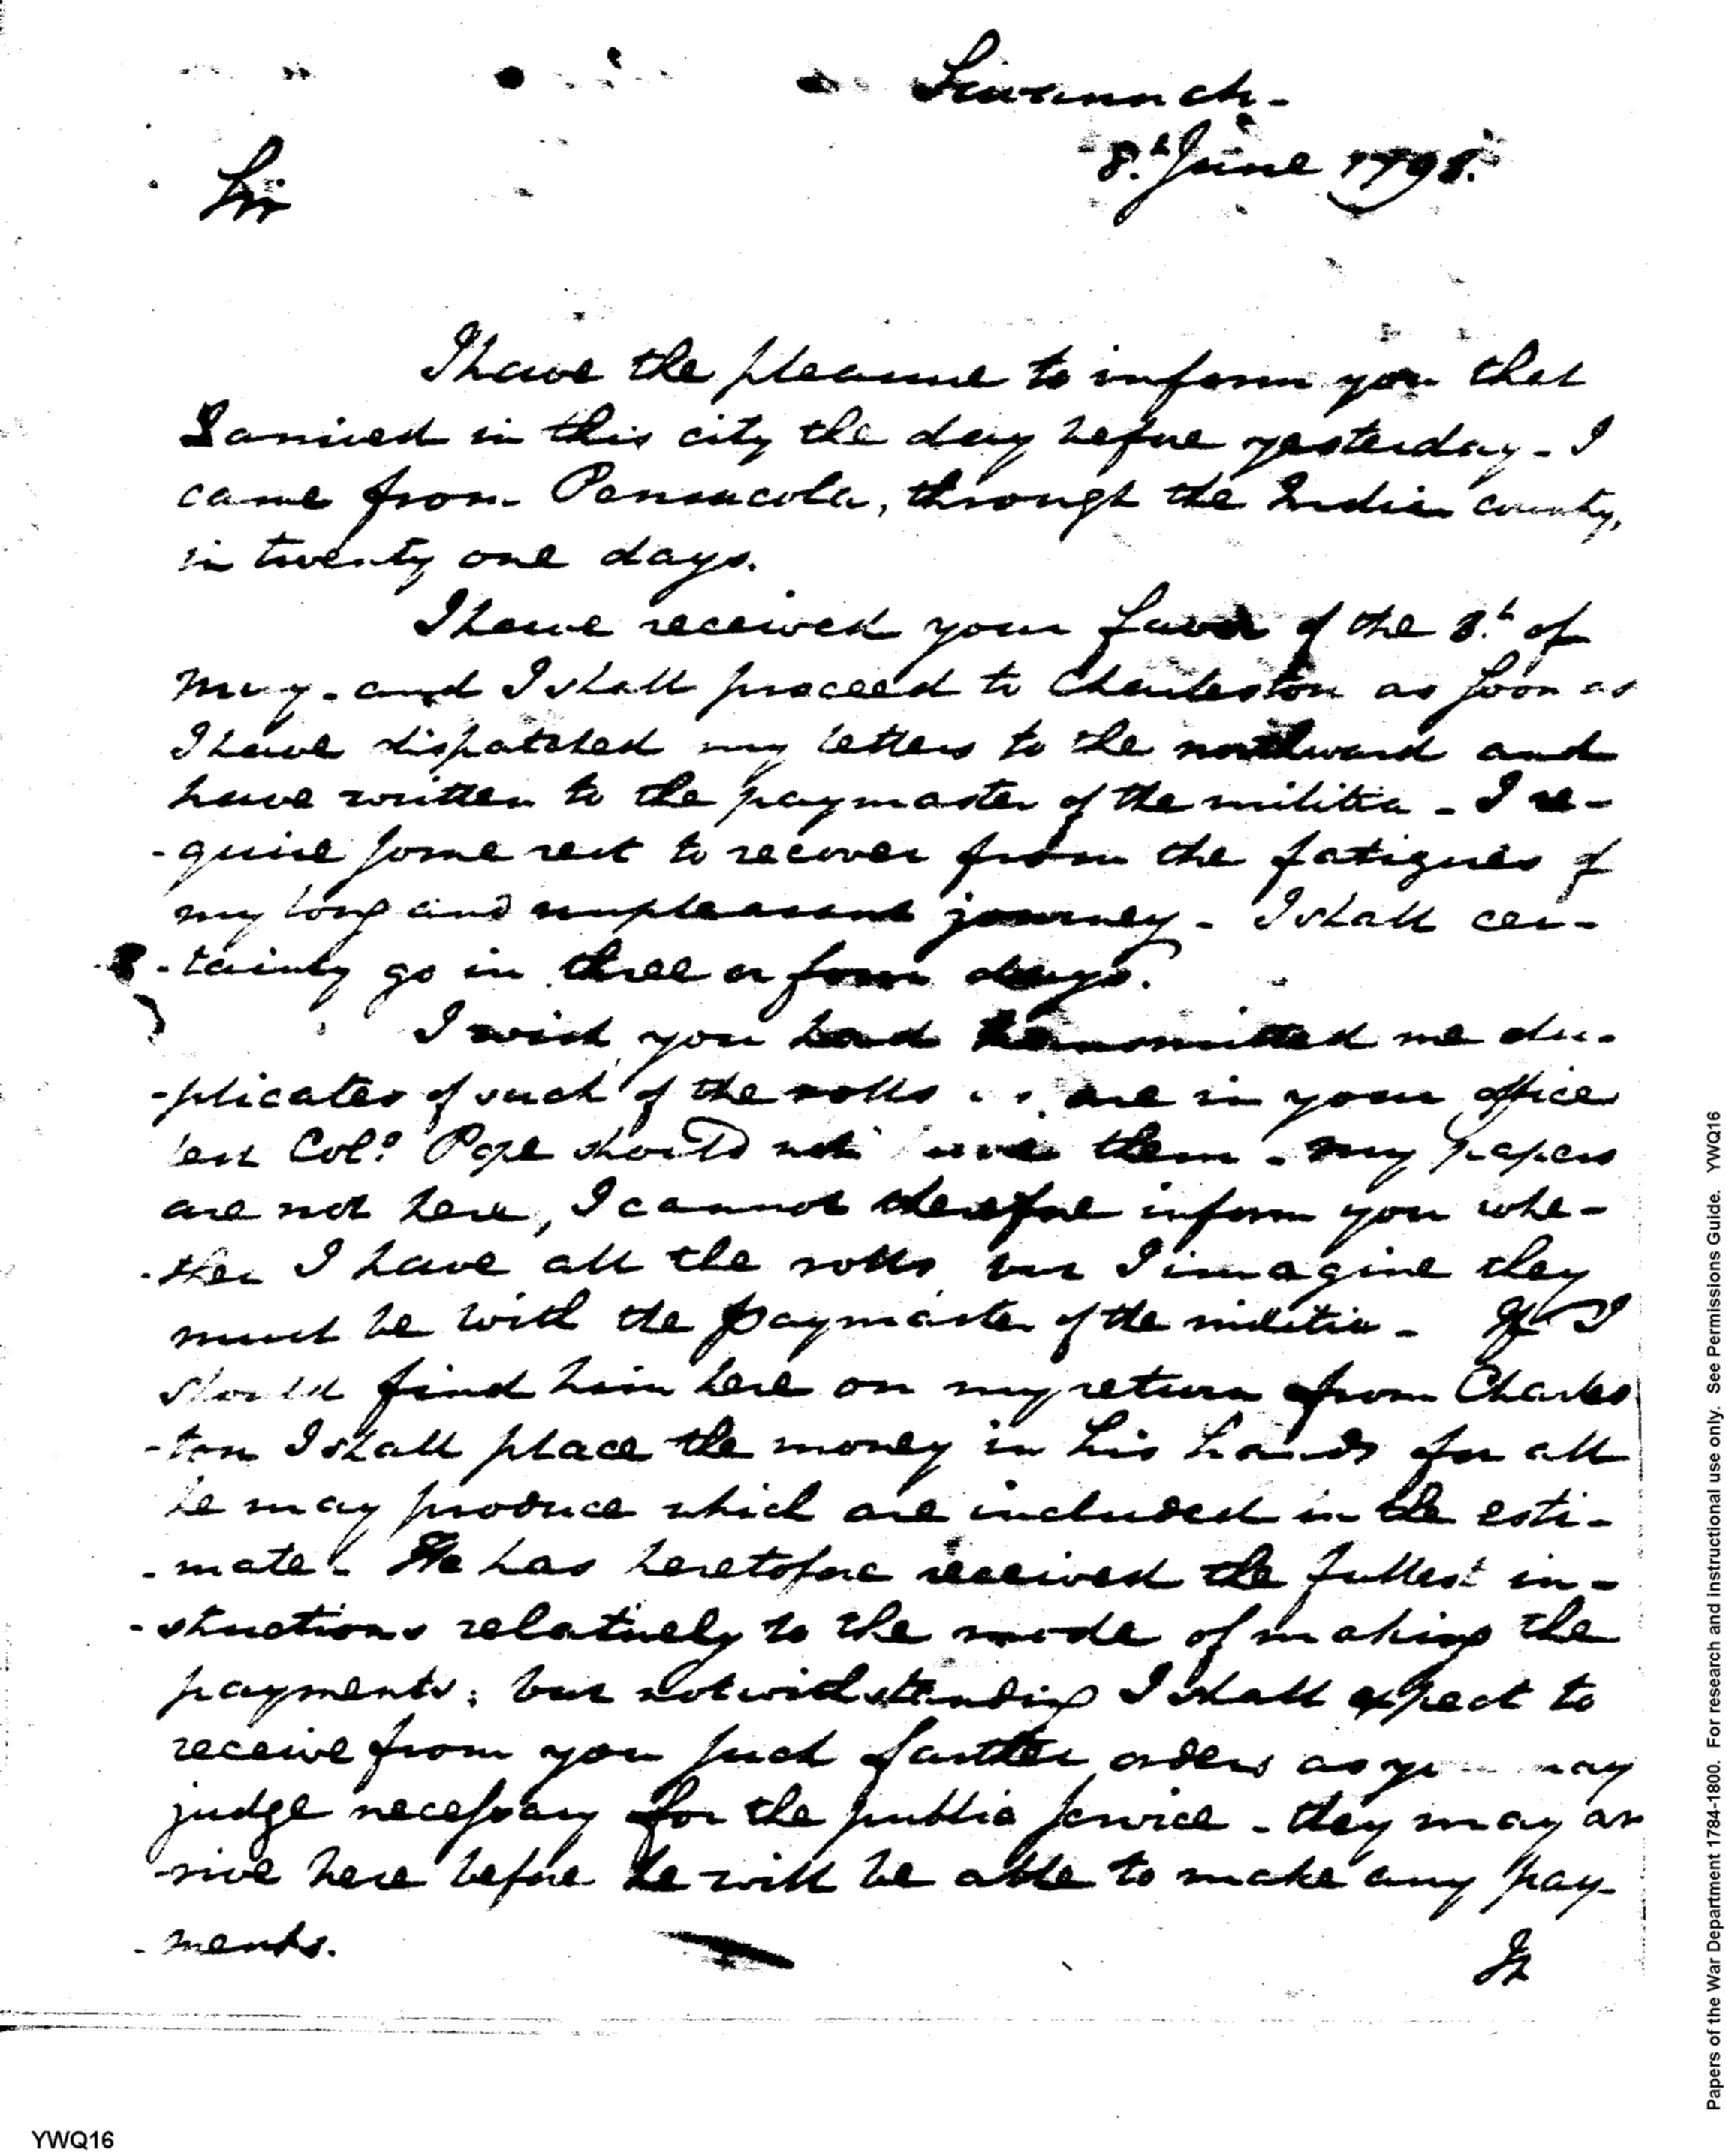 Savannah -
8.h June 1798.
Sir
I have the pleasure to inform you that
I arrived in this city the day before yesterday - I
came from Pensacola, through the Indian country,
in twenty one days.
I have received your favor of the 8.h of
May - and I shall proceed to Charleston as soon as
I have dispatched my letters to the northward and
have written to the paymaster of the militia - I re-
-quire some rest to recover from the fatigues of
my long and unpleasant journey - I shall cer-
-tainly go in three or four days.
I wish you had transmitted me du-
-plicates of such of the rolls as are in your office
lest Col.o Pope should not have them - my papers
are not here, I cannot therefore inform you whe-
-ther I have all the rolls but I imagine they
must be with the paymaster of the militia - If I
should find him here on my return from Charles
-ton I shall place the money in his hands for all
he may produce which are included in the esti-
-mate - He has heretofore received the fullest in-
-structions relatively to the mode of making the
payments; but notwithstanding I shall expect to
receive from you such farther orders as you may
judge necessary for the public service - they may ar
-rive here before he will be able to make any pay-
-ments.
If
Papers of the War Department 1784-1800. For research and instructional use only. See Permissions Guide. YWQ16
YWQ16